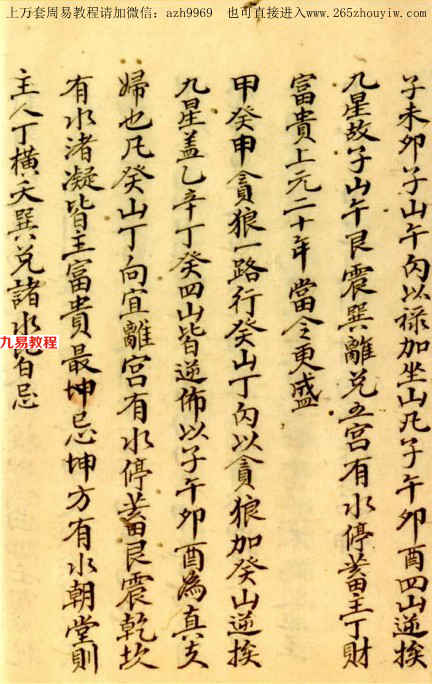 上万套周易教程请加微信：azh9969 也可直接进入www.265zhouyiw.com
子未卯子山午向以禄加坐山凡子午卯酉四山逆挨
九星故子山午艮震巽離兑五宫有水停蓄主丁財
富貴上元二十年當令更盛
甲癸申貪狼一路行癸山丁向以貪狼加癸山逆挨
九星盖乙辛丁癸四山皆逆佈以子午卯酉為真夫
婦也凡癸山丁向宜離宫有水停蓄艮震乾坎
有水渚凝皆主富貴最坤忌坤方有水朝堂則
主人丁横夭巽兑諸水皆忌
九易教程